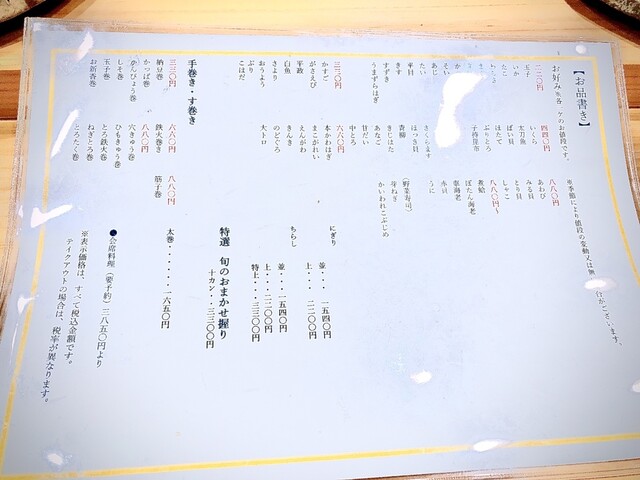 【お品書き】
お好み
ケのお値段です。
※季節により値段の変動又は無
ございます。
二二〇円
玉子
いか
たこ
あじ
たい
平目
きす
すずき
うまずらはぎ
三三〇円
かすご
がさえび
平政
白魚
さより
おうよう
ぶり
こはだ
四四〇円
いくら
太刀魚
ばい貝
ほたて
ぶりとろ
子持昆布
さくらます
ほっき貝
青柳
きじはた
あなご
甘だい
中とろ
六六〇円
本かわはぎ
まこがれい
えんがわ
きんき
のどぐろ
大トロ
八八〇円
あわび
みる貝
とり貝
しゃこ
八八〇円〜
煮蛤
ぼたん海老
車海老
赤貝
うに
(野菜寿司)
芽ねぎ
かいわれこぶじめ
手巻き・す巻き
三三〇円
納豆巻
かっぱ巻
かんぴょう巻
しそ巻
玉子巻
お新香巻
六六〇円
鉄火巻き
八八〇円
穴きゅう巻
ひもきゅう巻
とろ鉄火巻
ねぎとろ巻
とろたく巻
八八〇円
筋子巻
太巻・・・・・・一六五〇円
にぎり
並・・・一五四〇円
上・・・二二〇〇円
ちらし
並・・・一五四〇円
上・・・二二〇〇円
特上・・・三三〇〇円
特選 旬のおまかせ握り
十カン・・・三三〇〇円
●会席料理(要予約)三八五〇円より
※表示価格は、すべて税込金額です。
テイクアウトの場合は、税率が異なります。